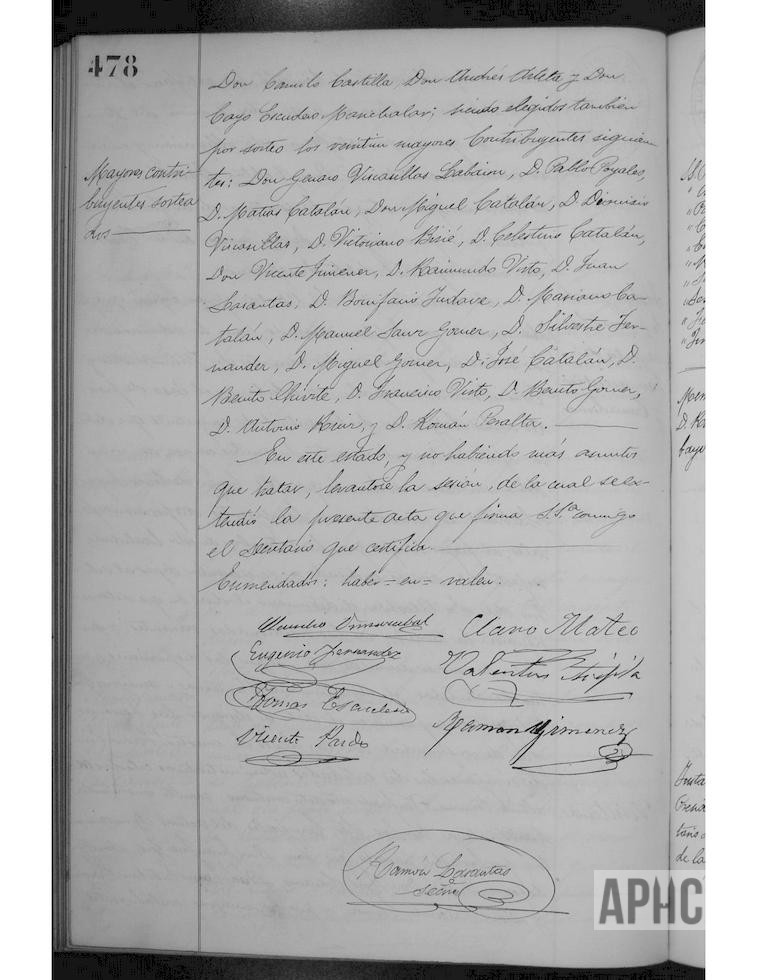 478
Don Camilo Castilla, Don Andrés Arleta y Don
Cayo Escudero Marichalar; siendo elegidos también
por sorteo los veintiun mayores Contribuyentes siguien
tes: Don Genaro Viscasillas Labairon, D. Pablo Poyales,
D. Matias Catalán, Don Miguel Catalán, D. Dionisio
Viscasillas, D. Victoriano Bisié, D. Celestino Catalán,
Don Vicente Jimenez, D. Raimundo Visto, D. Juan
D. Bonifacio D. Mariano Ca-
talán, D. Manuel Sanz Gomez, D. Silvestre Fer-
nandez, D. Miguel Gomez, D. José Catalán, D.
Benito Chivite, D. Francisco Visto, D. Benito Gomez,
D. Antonio Ruiz, y D. Román Peralta.
En este estado, y no habiendo más asuntos
que tratar, levantose la sesión, de la cual se ex-
tendió la presente acta que firma S.Sª. conmigo
el Secretario que certifica.
Enmendados: haber = en = valen.
Mayores contri-
buyentes sortea
dos
Claro Mateo
Eugenio Fernandez
Valentin
Tomas Escudero
Vicente Pardo
Ramon Gimenez
Ramón
Secrio
APHC